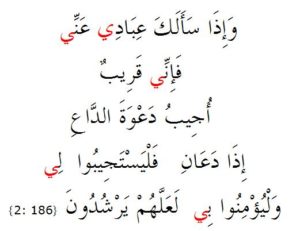 وَإِذَا سَأَلَكَ عِبَادِي عَنِّي
فَإِنِّي قَرِيبٌ
أُجِيبُ دَعْوَةَ الدَّاعِ
إِذَا دَعَانِ فَلْيَسْتَجِيبُوا لِي
وَلْيُؤْمِنُوا بِي لَعَلَّهُمْ يَرْشُدُونَ {2: 186}